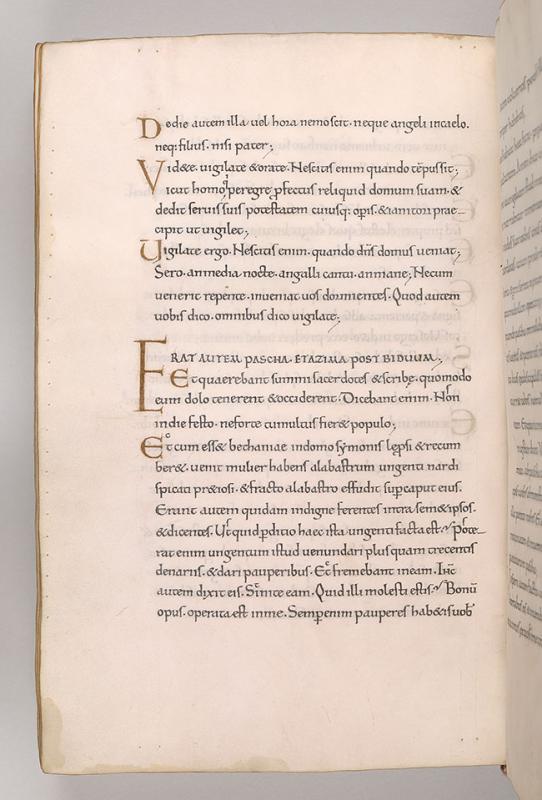 De die autem illa uel hora nemo scit. neque angeli in caelo.
neq; filius. nisi pater;
Videte. uigilate & orate. Nescitis enim quando tēpus sit;
icut homo peregre pfectus reliquid domum suam. &
dedit seruis suis potestatem cuiusq; opis. & ianitori prae-
cipit ut uigilet;
Uigilate ergo. Nescitis enim. quando dn̄s domus ueniat;
Sero. an media nocte. an galli cantu. an mane; Ne cum
uenerit repente. inueniat uos dormientes. Quod autem
uobis dico. omnibus dico uigilate;
ERAT AUTEM PASCHA. ET AZIMA POST BIDUUM;
Et quaerebant summi sacerdotes & scribę. quomodo
eum dolo tenerent & occiderent. Dicebant enim. Non
in die festo. ne forte tumultus fier& populo;
Et cum ess& bethaniae in domo symonis lęp̄si & recum
ber&. uenit mulier habens alabastrum ungenti nardi
spicati p̄&iosi. & fracto alabastro effudit sup caput eius.
Erant autem quidam indigne ferentes intra sem&ipsos.
& dicentes. Ut quid pditio haec ista ungenti facta est. Pote-
rat enim ungentum istud uenundari plus quam trecentis
denariis. & dari pauperibus. Et fremebant in eam. Ihc
autem dixit eis. Sinite eam. Quid illi molesti estis. Bonū
opus. operata est in me. Semper enim pauperes hab&is uob